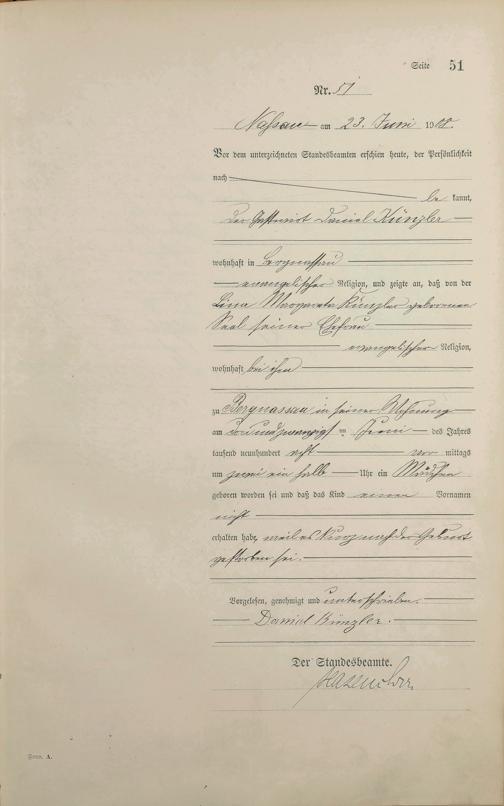 Seite 51
Nr. 51
Nassau am 23. Juni 1908.
Vor dem unterzeichneten Standesbeamten erschien heute, der Persönlichkeit
nach
be kannt,
der Gastwirt Daniel Künzler
wohnhaft in Bergnassau
evangelischer Religion, und zeigte an, daß von der
Lina Margareta Künzler geborenen
Saal seiner Ehefrau
evangelischer Religion,
wohnhaft bei ihm
zu Bergnassau in seiner Wohnung
am dreiundzwanzigsten Juni des Jahres
tausend neunhundert acht vor mittags
um zwei ein halb Uhr ein Mädchen
geboren worden sei und daß das Kind einen Vornamen
nicht
erhalten habe, weil es kurz nach der Geburt
gestorben sei.
Vorgelesen, genehmigt und unterschrieben.
Daniel Künzler.
Der Standesbeamte.
Form. A.